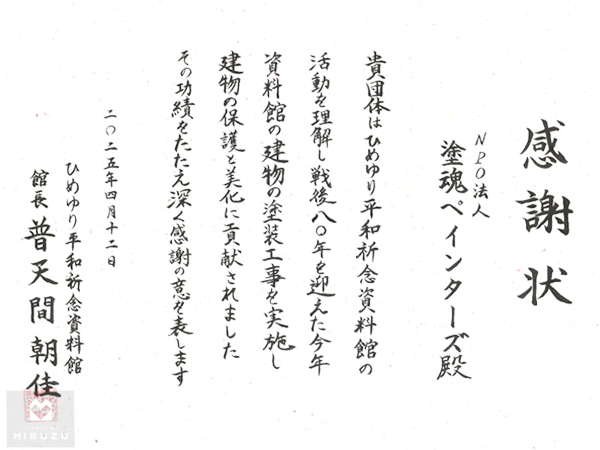 感謝状
NPO法人
塗魂ペインターズ殿
貴団体はひめゆり平和祈念資料館の
活動を理解し戦後八〇年を迎えた今年
資料館の建物の塗装工事を実施し
建物の保護と美化に貢献されました
その功績をたたえ深く感謝の意を表します
二〇二五年四月十二日
ひめゆり平和祈念資料館
館長 普天間朝佳
MISUZU